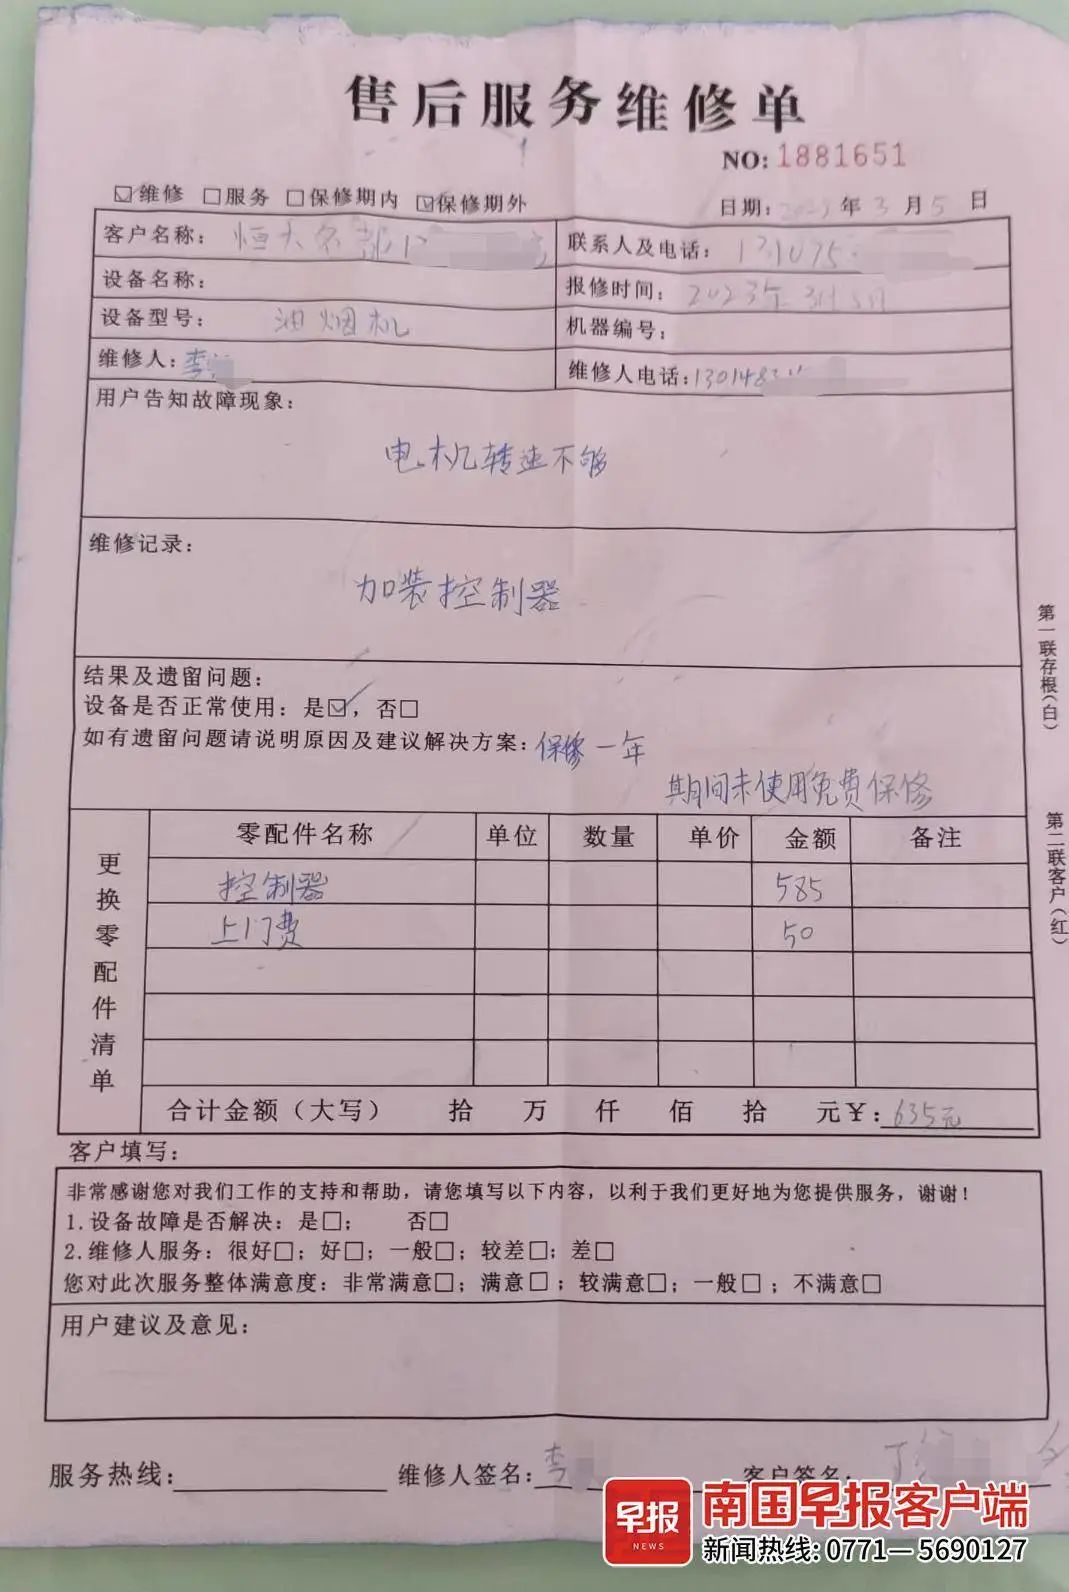 售后服务维修单
NO: 1881651
☑维修 □服务 □保修期内 ☑保修期外 日期: 2023年3月5日
客户名称: 恒大名都 联系人及电话: 131075
设备名称: 报修时间: 2023年3月5日
设备型号: 油烟机 机器编号:
维修人: 李 维修人电话: 1301483
用户告知故障现象:
电机转速不够
维修记录:
加装控制器
结果及遗留问题:
设备是否正常使用: 是☑, 否□
如有遗留问题请说明原因及建议解决方案: 保修一年
期间未使用免费保修
更换零配件清单
零配件名称 单位 数量 单价 金额 备注
控制器 585
上门费 50
合计金额（大写） 拾 万 仟 佰 拾 元￥: 635元
客户填写:
非常感谢您对我们工作的支持和帮助，请您填写以下内容，以利于我们更好地为您提供服务，谢谢！
1.设备故障是否解决: 是□; 否□
2.维修人服务: 很好□; 好□; 一般□; 较差□; 差□
您对此次服务整体满意度: 非常满意□; 满意□; 较满意□; 一般□; 不满意□
用户建议及意见:
服务热线: 维修人签名: 李 客户签名:
第一联存根(白)
第二联客户(红)
早报
NEWS
南国早报客户端
新闻热线: 0771—5690127